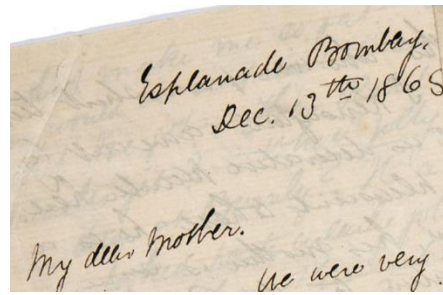 Esplanade Bombay.
Dec. 13th 1865
My dear Mother.
We were very